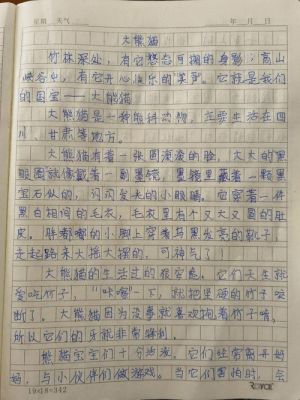 星期 天气 年 月 日
大熊猫
竹林深处,有它憨态可掬的身影;高山
峡谷中,有它开心快乐的笑声。它就是我们
的国宝——大熊猫
大熊猫是一种哺乳动物,主要生活在四
川、甘肃等地方。
大熊猫有着一张圆滚滚的脸,大大的黑
眼圈就像戴着一副墨镜,墨镜里藏着一颗黑
宝石似的,闪闪发光的小眼睛。它穿着一件
黑白相间的毛衣,毛衣里有个又大又圆的肚
皮。胖嘟嘟的小脚上穿着乌黑发亮的靴子,
走起路来大摇大摆的,可神气了!
大熊猫的生活过的很安逸。它们天生就
爱吃竹子,“咔嚓”一下,就把坚硬的竹子咬
断了。大熊猫因为没事就喜欢抱着竹子啃,
所以它们的牙就非常锋利。
熊猫宝宝们十分活泼,它们经常离开妈
妈,与小伙伴们做游戏。当它们害怕时,会
19×18=342
ROYCE